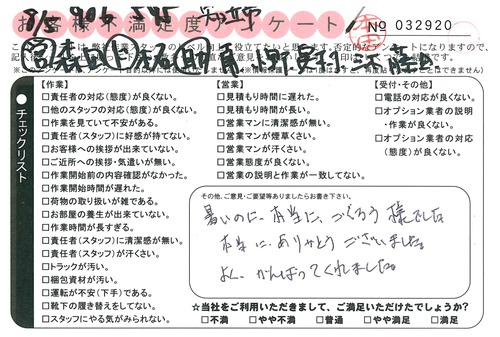 お客様不満足度アンケート
No 032920
チェックリスト
【作業】
□責任者の対応(態度)が良くない。
□他のスタッフの対応(態度)が良くない。
□作業を見ていて不安がある。
□責任者(スタッフ)に好感が持てない。
□お客様への挨拶が出来ていない。
□ご近所への挨拶・気遣いが無い。
□作業開始前の内容確認がなかった。
□作業開始時間が遅れた。
□荷物の取り扱いが雑である。
□お部屋の養生が出来ていない。
□作業時間が長すぎる。
□責任者(スタッフ)に清潔感が無い。
□責任者(スタッフ)が汗くさい。
□トラックが汚い。
□梱包資材が汚い。
□運転が不安(下手)である。
□靴下の履き替えをしてない。
□スタッフにやる気がみられない。
【営業】
□見積もり時間に遅れた。
□見積もり時間が長い。
□営業マンに清潔感が無い。
□営業マンが煙草くさい。
□営業マンが汗くさい。
□営業態度が良くない。
□営業の説明と作業が一致してない。
【受付・その他】
□電話の対応が良くない。
□オプション業者の説明
・作業が良くない。
□オプション業者の対応
(態度)が良くない。
その他、ご意見・ご要望等ありましたらお書き下さい。
暑いのに、本当に、ごくろう様でした
本当に、ありがとうございました。
よく、がんばってくれました。
☆当社をご利用いただきまして、ご満足いただけたでしょうか?
□不満 □やや不満 □普通 □やや満足 □満足